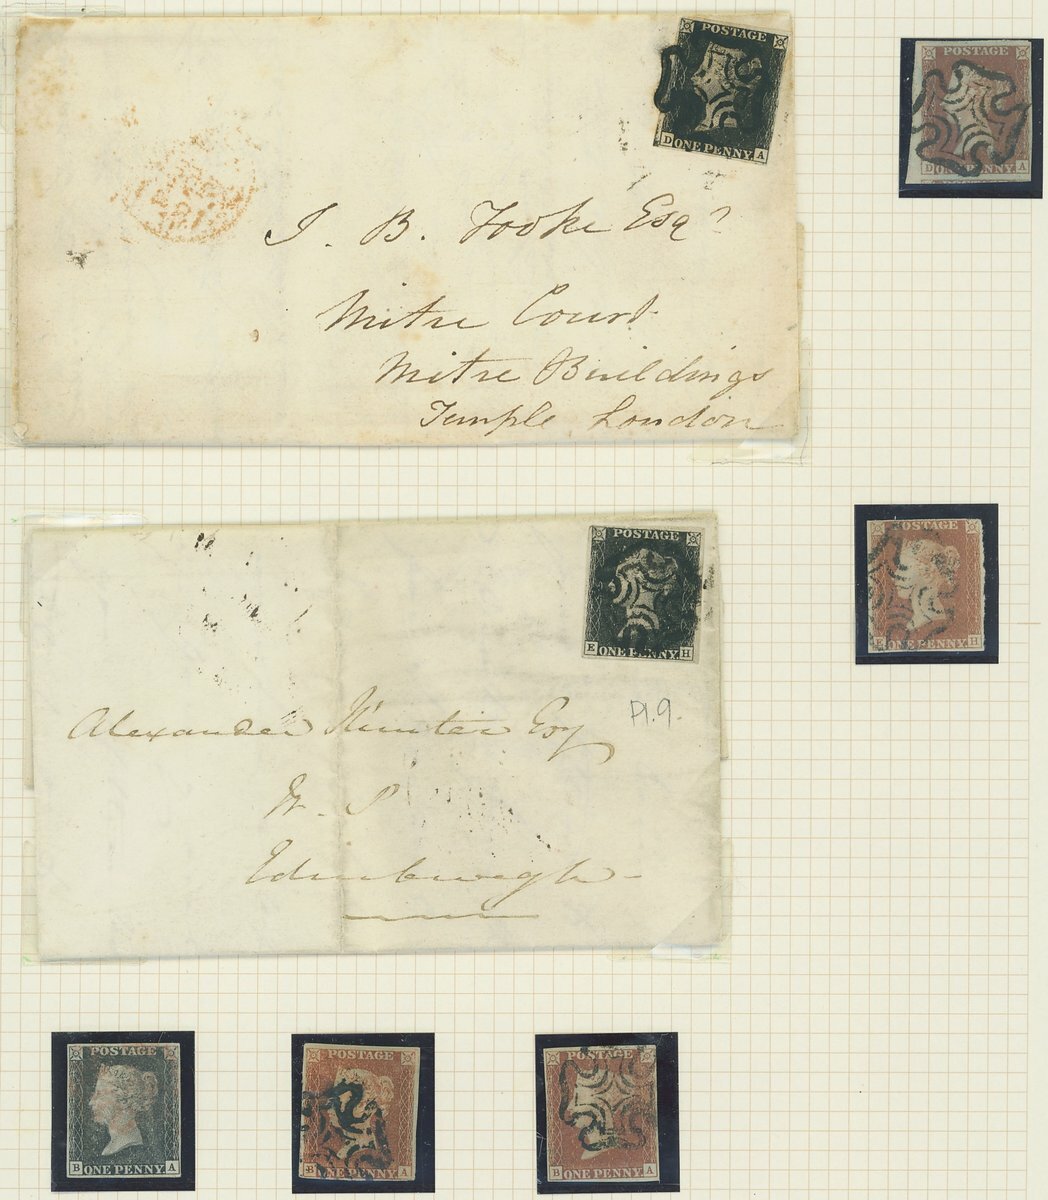 POSTAGE
D ONE PENNY. A
J. B. Tooke Esqr
Mitre Court
Mitre Buildings
Temple London
POSTAGE
D ONE PENNY A
POSTAGE
E ONE PENNY. H
Pl. 9.
Alexander Hunter Esq
W. S
Edinburgh
POSTAGE
E ONE PENNY H
POSTAGE
B ONE PENNY. A
POSTAGE
B ONE PENNY. A
POSTAGE
B ONE PENNY. A